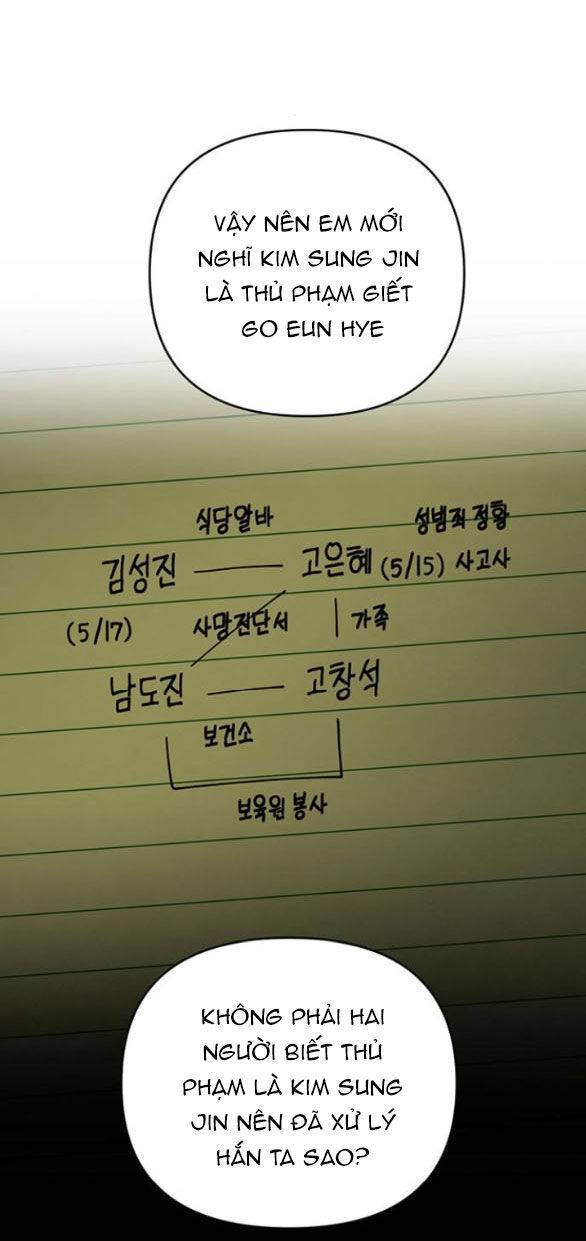 VẬY NÊN EM MỚI
NGHĨ KIM SUNG JIN
LÀ THỦ PHẠM GIẾT
GO EUN HYE
식당알바 성범죄 정황
김성진 고은혜 (5/15) 사고사
(5/17) 사망진단서 가족
남도진 고창석
보건소
보육원 봉사
KHÔNG PHẢI HAI
NGƯỜI BIẾT THỦ
PHẠM LÀ KIM SUNG
JIN NÊN ĐÃ XỬ LÝ
HẮN TA SAO?